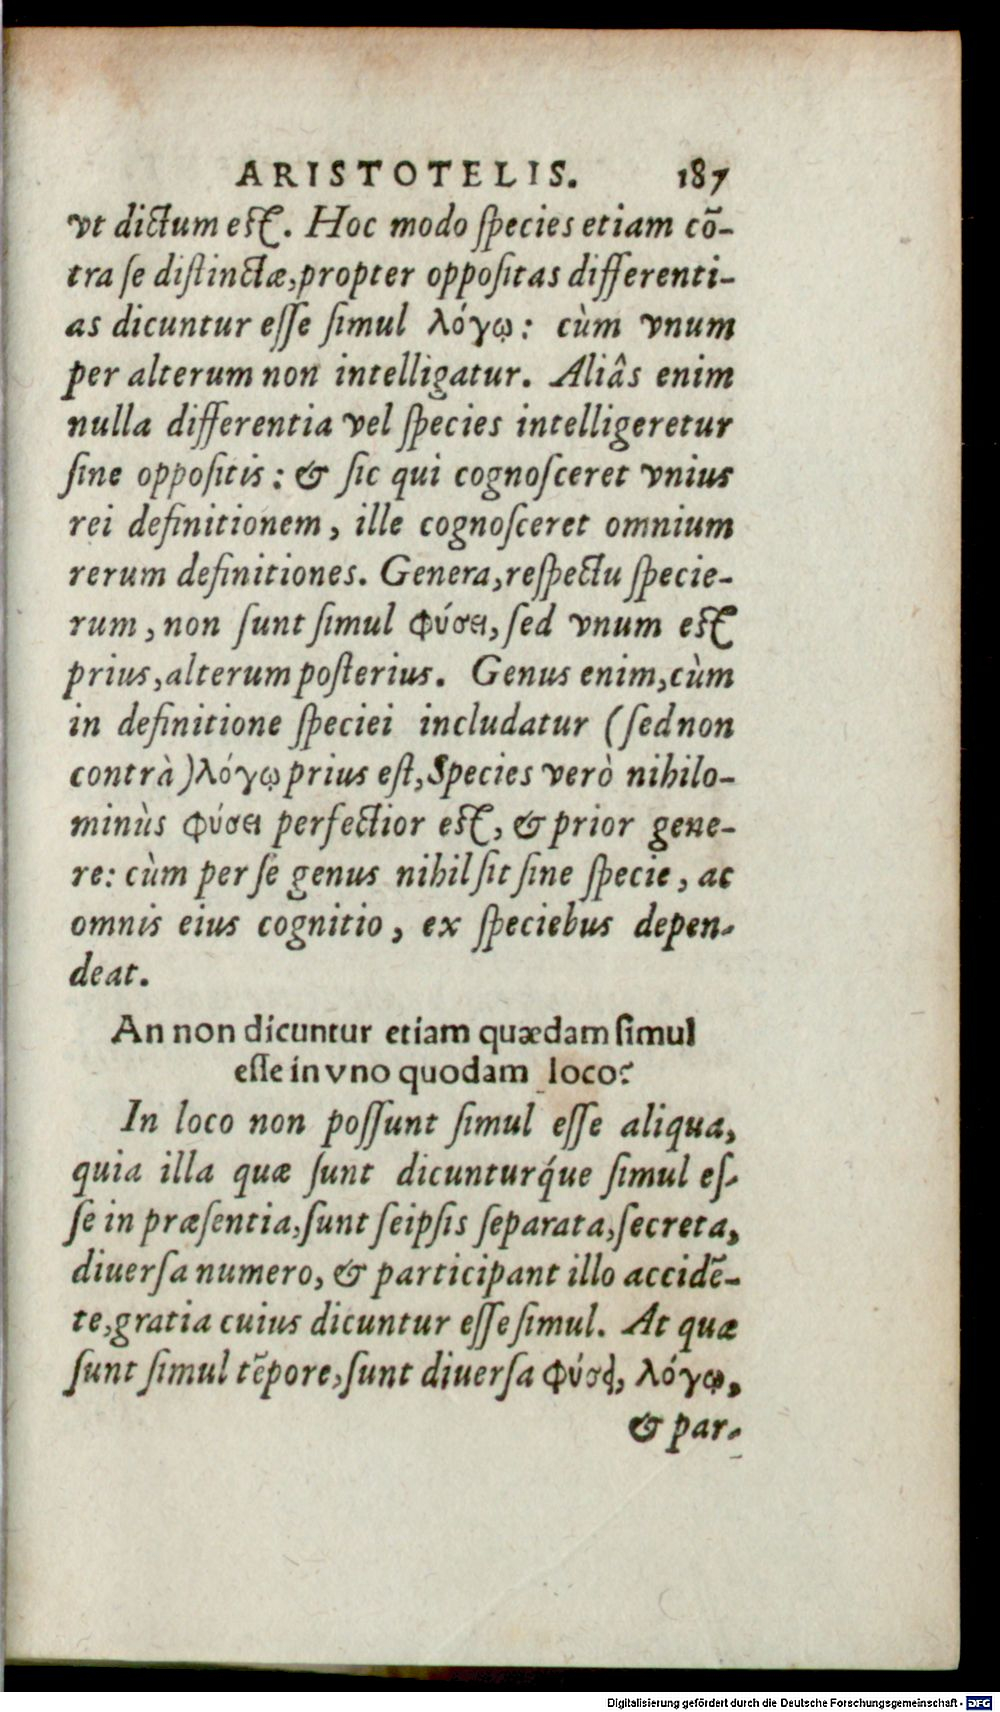 ARISTOTELIS. 187
vt dictum est. Hoc modo species etiam cō-
tra se distinctæ, propter oppositas differenti-
as dicuntur esse simul λόγῳ: cùm vnum
per alterum non intelligatur. Aliâs enim
nulla differentia vel species intelligeretur
sine oppositis: & sic qui cognosceret vnius
rei definitionem, ille cognosceret omnium
rerum definitiones. Genera, respectu specie-
rum, non sunt simul φύσει, sed vnum est
prius, alterum posterius. Genus enim, cùm
in definitione speciei includatur (sed non
contrà) λόγῳ prius est, Species verò nihilo-
minùs φύσει perfectior est, & prior gene-
re: cùm per se genus nihil sit sine specie, ac
omnis eius cognitio, ex speciebus depen-
deat.
An non dicuntur etiam quædam simul
esse in vno quodam loco?
In loco non possunt simul esse aliqua,
quia illa quæ sunt dicunturq́ue simul es-
se in præsentia, sunt seipsis separata, secreta,
diuersa numero, & participant illo accidē-
te, gratia cuius dicuntur esse simul. At quæ
sunt simul tēpore, sunt diuersa φύσει, λόγῳ,
& par-
Digitalisierung gefördert durch die Deutsche Forschungsgemeinschaft - DFG